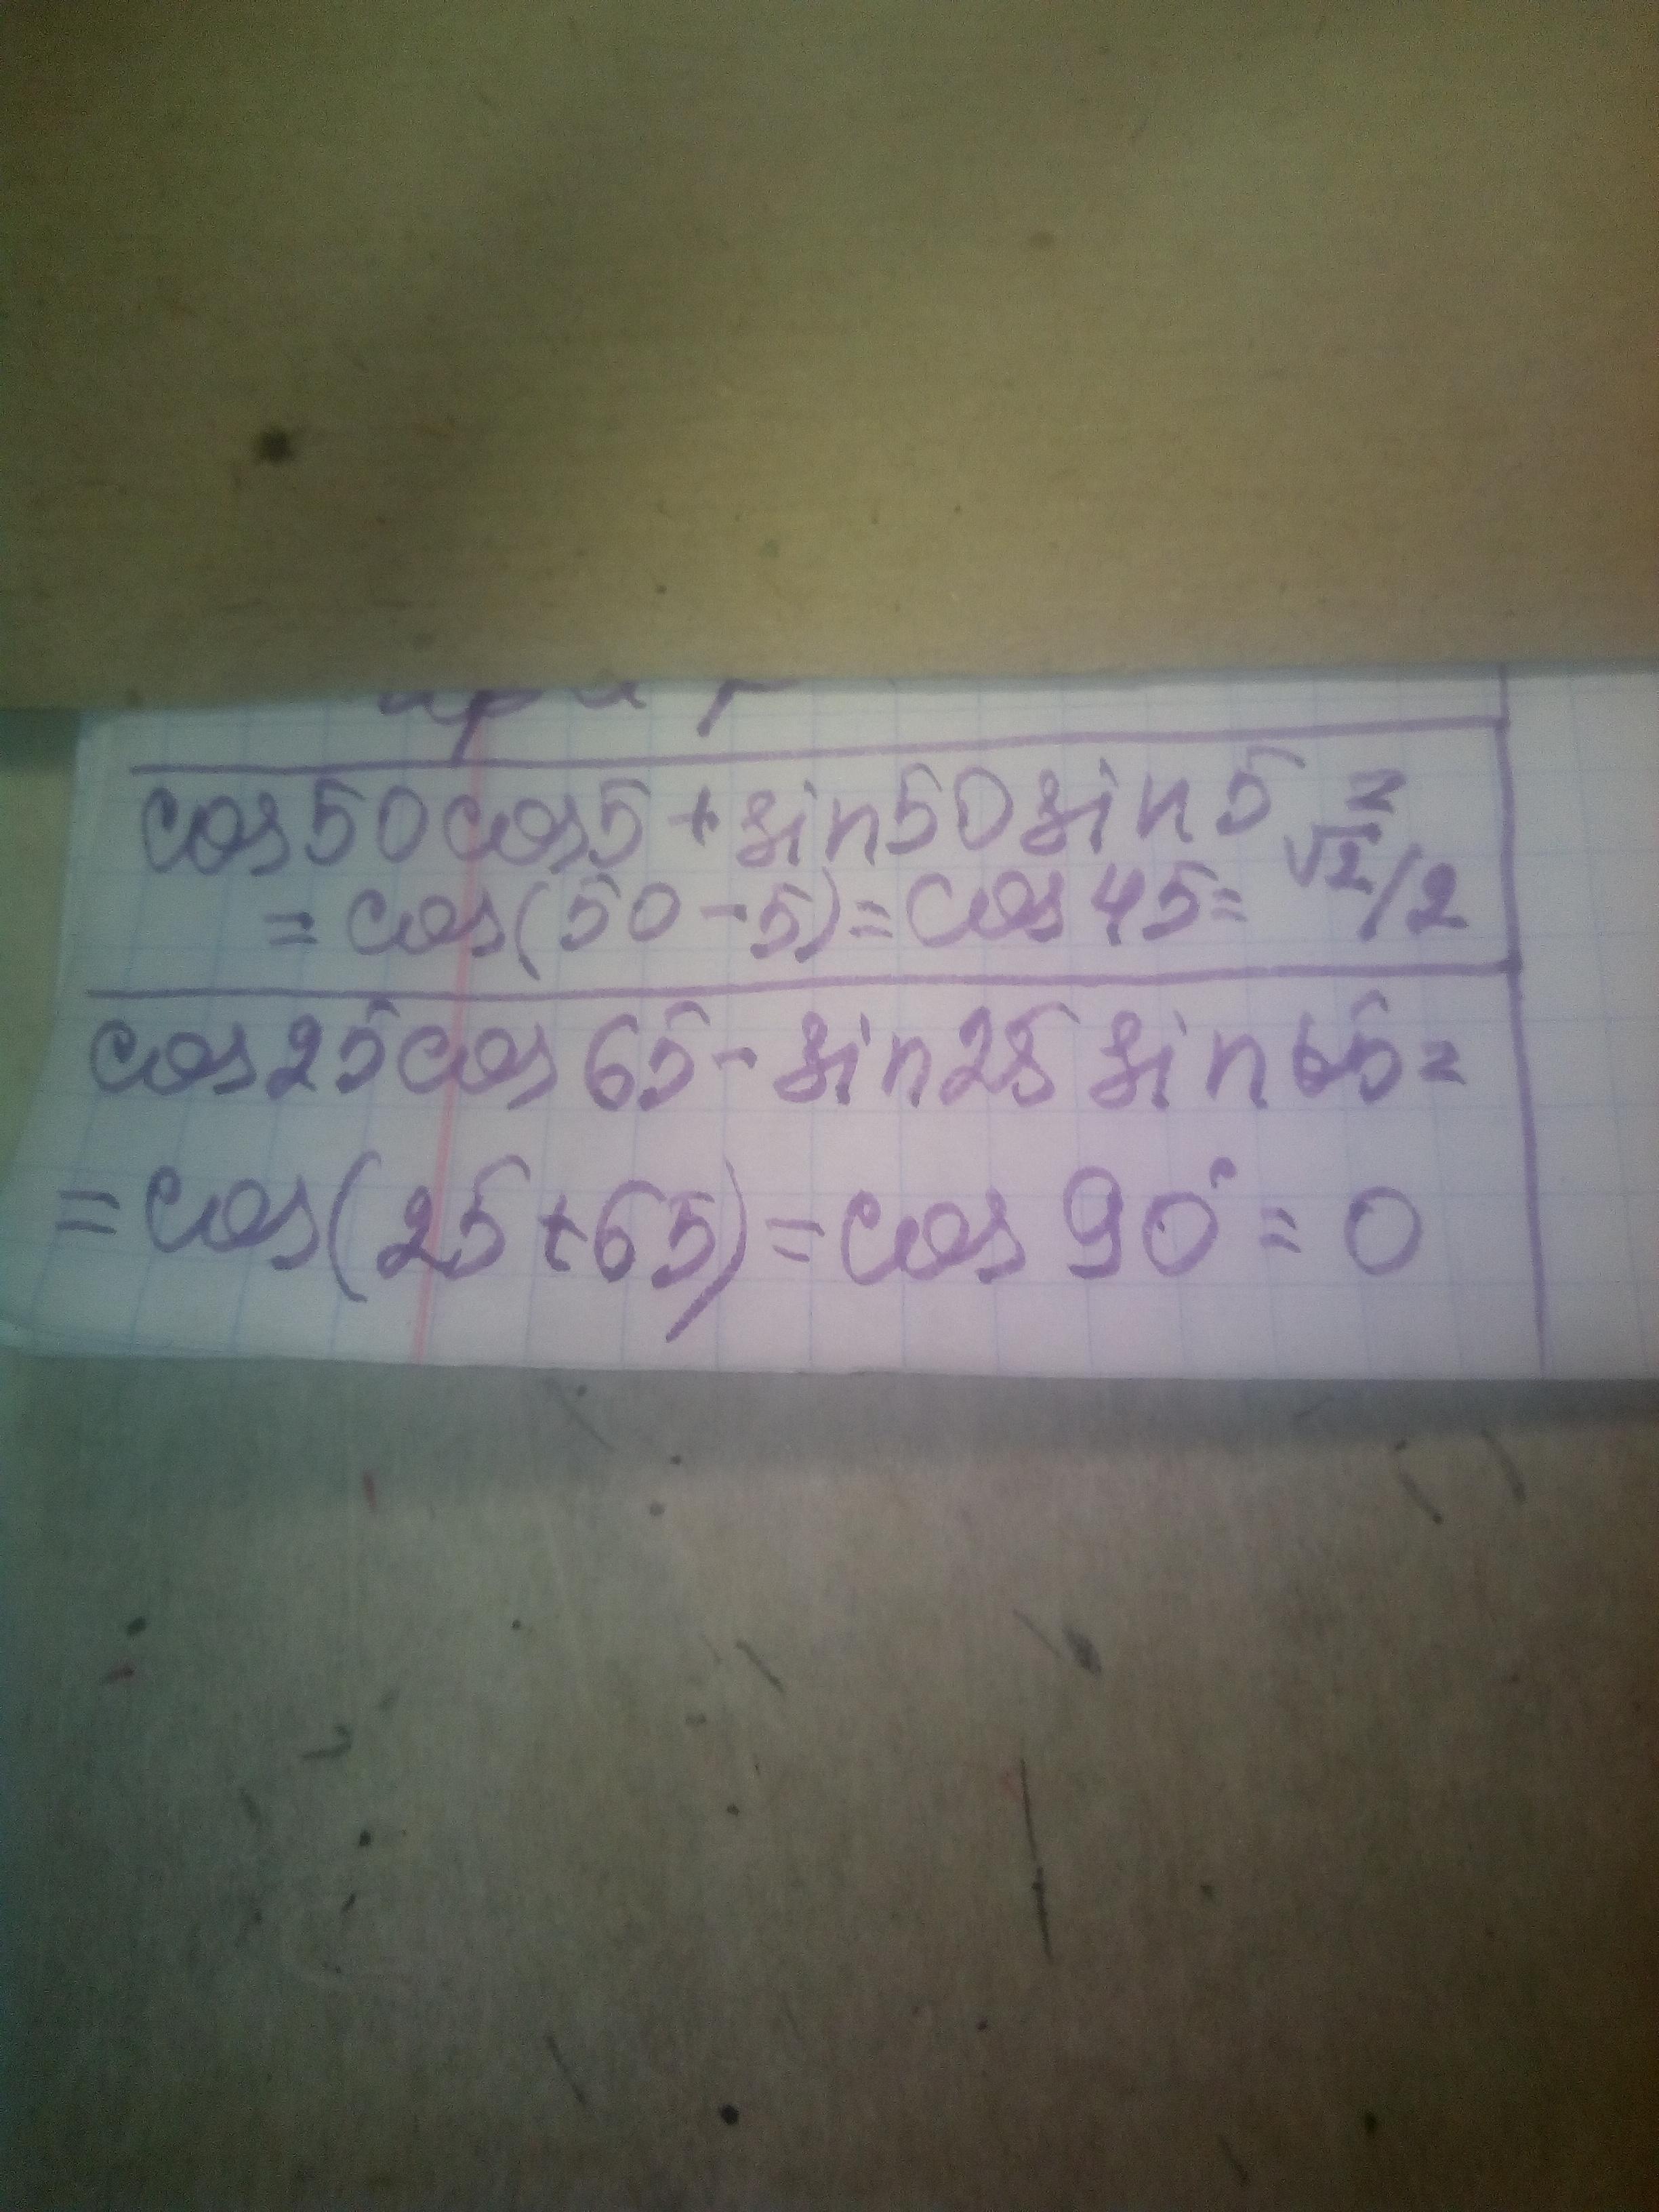 cos50cos5+sin50sin5=
=cos(50-5)=cos45=√2/2
cos25cos65-sin25sin65=
=cos(25+65)=cos90°=0